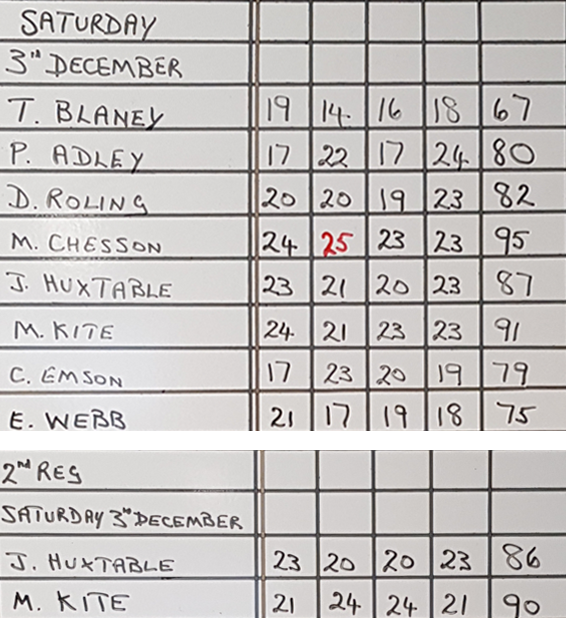 SATURDAY
3RD DECEMBER
T. BLANEY 19 14 16 18 67
P. ADLEY 17 22 17 24 80
D. ROLING 20 20 19 23 82
M. CHESSON 24 25 23 23 95
J. HUXTABLE 23 21 20 23 87
M. KITE 24 21 23 23 91
C. EMSON 17 23 20 19 79
E. WEBB 21 17 19 18 75
2nd REG
SATURDAY 3RD DECEMBER
J. HUXTABLE 23 20 20 23 86
M. KITE 21 24 24 21 90